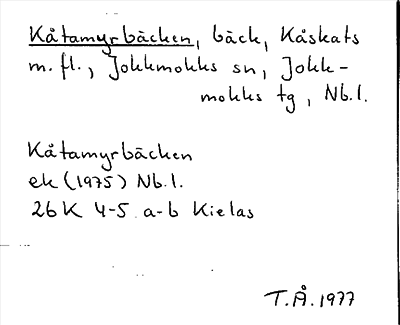 Kåtamyrbäcken, bäck, Kåskats
m. fl., Jokkmokks sn, Jokk-
mokks tg, Nb.l.
Kåtamyrbäcken
ek (1975) Nb.l.
26K 4-5 a-b Kielas
T.Å. 1977